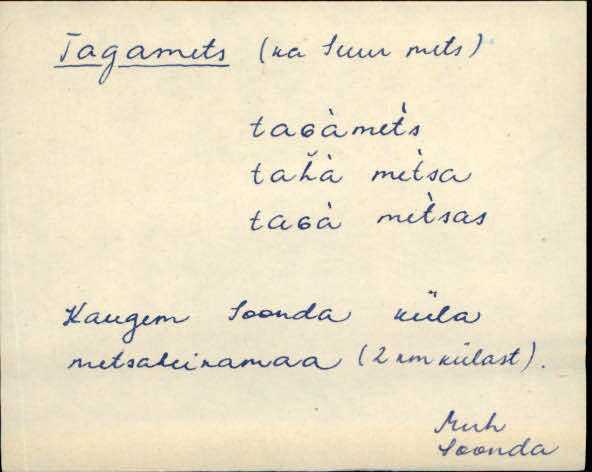 Tagamets (ka Suur mets)
taɢàmet̀s
tah̆à met̀sa
taɢà met̀sas
Kaugem Soonda küla
metsaheinamaa (2 km külast).
Muh
Soonda